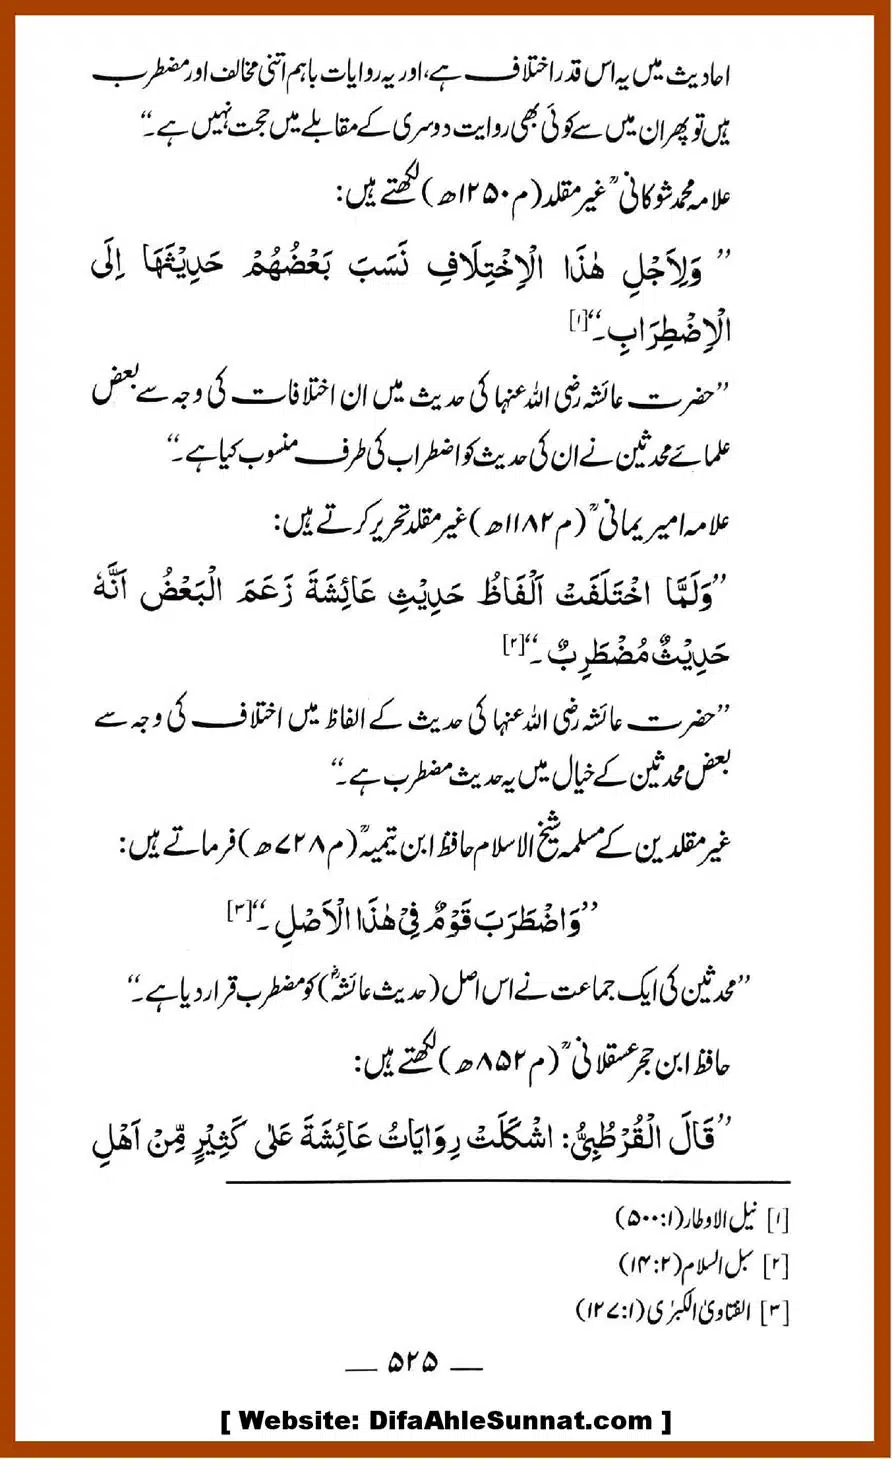 احادیث میں یہ اس قدر اختلاف ہے، اور یہ روایات باہم اتنی مخالف اور مضطرب
ہیں تو پھر ان میں سے کوئی بھی روایت دوسری کے مقابلے میں حجت نہیں ہے۔‘‘
علامہ محمد شوکانیؒ غیر مقلد (م ۱۲۵۰ھ) لکھتے ہیں:
’’ وَلِاَجْلِ هٰذَا الْاِخْتِلَافِ نَسَبَ بَعْضُهُمْ حَدِيْثَهَا اِلَى
الْاِضْطِرَابِ۔‘‘[۱]
’’حضرت عائشہ رضی اللہ عنہا کی حدیث میں ان اختلافات کی وجہ سے بعض
علمائے محدثین نے ان کی حدیث کو اضطراب کی طرف منسوب کیا ہے۔‘‘
علامہ امیر یمانیؒ (م ۱۱۸۲ھ) غیر مقلد تحریر کرتے ہیں:
’’وَلَمَّا اخْتَلَفَتْ اَلْفَاظُ حَدِيْثِ عَائِشَةَ زَعَمَ الْبَعْضُ اَنَّهٗ
حَدِيْثٌ مُضْطَرِبٌ۔‘‘[۲]
’’حضرت عائشہ رضی اللہ عنہا کی حدیث کے الفاظ میں اختلاف کی وجہ سے
بعض محدثین کے خیال میں یہ حدیث مضطرب ہے۔‘‘
غیر مقلدین کے مسلمہ شیخ الاسلام حافظ ابن تیمیہؒ (م ۷۲۸ھ) فرماتے ہیں:
’’وَاضْطَرَبَ قَوْمٌ فِيْ هٰذَا الْاَصْلِ۔‘‘[۳]
’’محدثین کی ایک جماعت نے اس اصل (حدیث عائشہؓ) کو مضطرب قرار دیا ہے۔‘‘
حافظ ابن حجر عسقلانیؒ (م ۸۵۲ھ) لکھتے ہیں:
’’قَالَ الْقُرْطُبِيُّ: اشْكَلَتْ رِوَايَاتُ عَائِشَةَ عَلٰى كَثِيْرٍ مِّنْ اَهْلِ
[۱] نیل الاوطار (۱:۵۰۰)
[۲] سبل السلام (۲:۱۴)
[۳] الفتاویٰ الکبرٰی (۱:۱۲۷)
— ۵۲۵ —
[ Website: DifaAhleSunnat.com ]